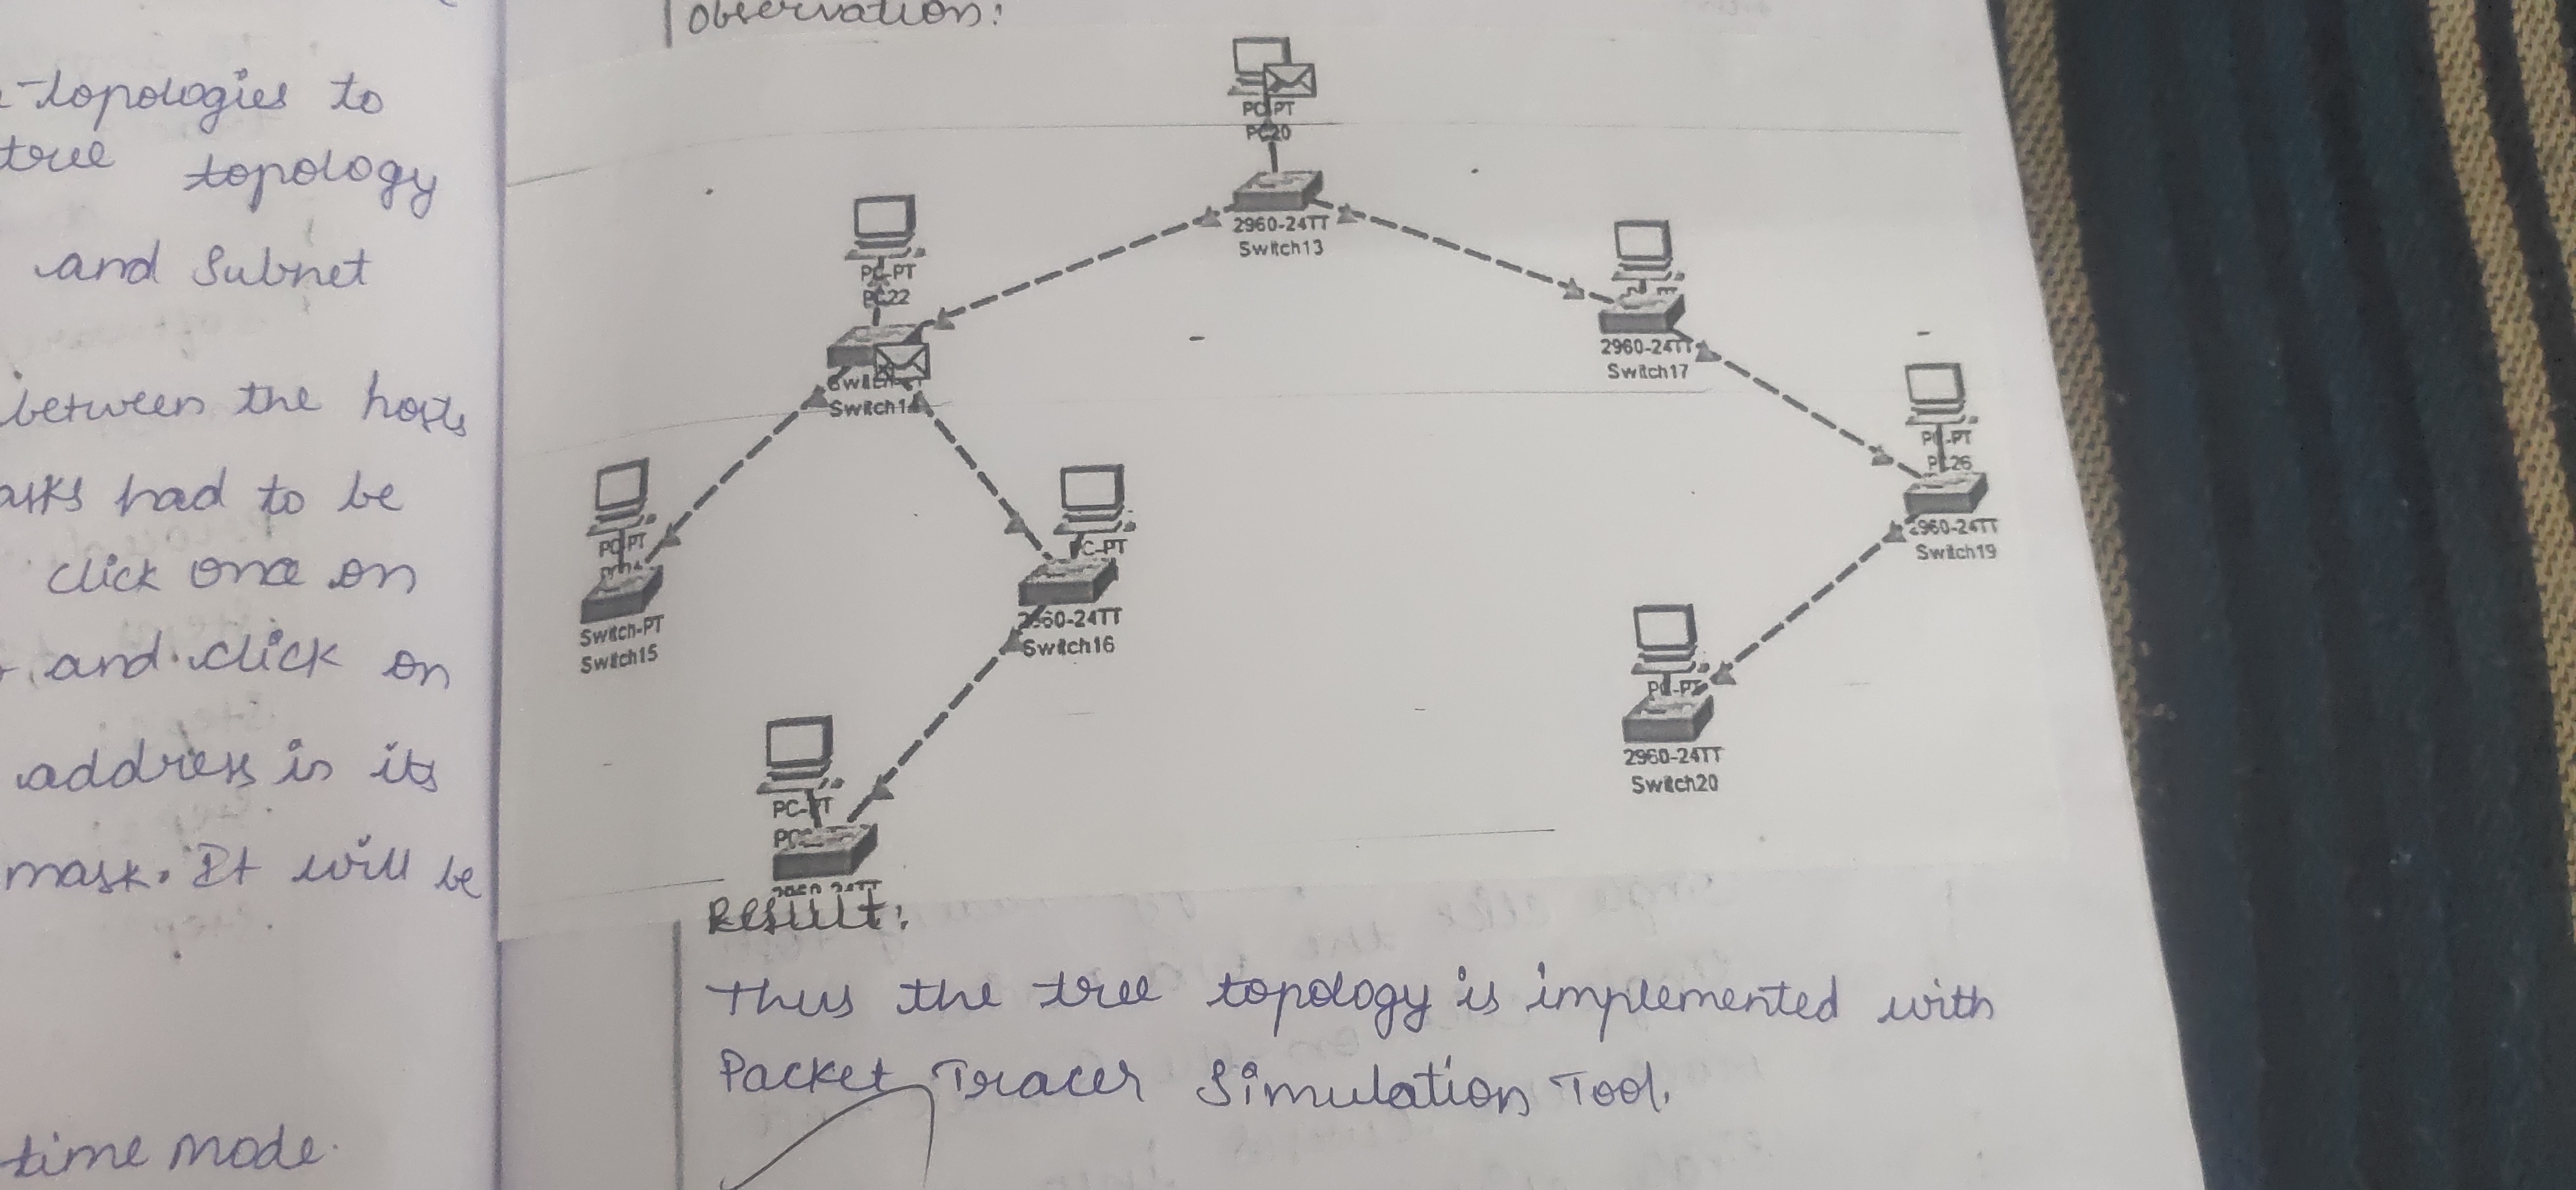 topologies to
tree topology
and Subnet
between the hosts
had to be
click once on
and click on
address is its
mask. It will be
time mode.
Observation:
PC-PT
PC20
2960-24TT
Switch13
PC-PT
PC22
Switch14
2960-24TT
Switch17
PC-PT
PC26
2960-24TT
Switch19
PC-PT
Switch-PT
Switch15
PC-PT
2960-24TT
Switch16
PC-PT
2960-24TT
Switch20
PC-PT
2960-24TT
Result:
Thus the tree topology is implemented with
Packet Tracer Simulation Tool.